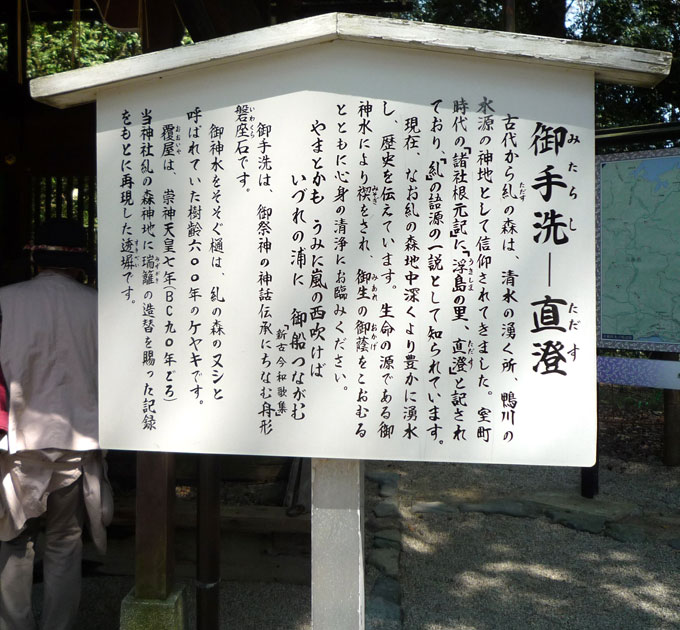 御手洗―直澄
みたらし
ただす
古代から糺の森は、清水の湧く所、鴨川の
ただす
水源の神地として信仰されてきました。室町
時代の「諸社根元記」に「浮島の里、直澄」と記され
うきしま
ただす
ており、「糺」の語源の一説として知られています。
現在、なお糺の森地中深くより豊かに湧水
し、歴史を伝えています。生命の源である御
神水により禊をされ、御生の御蔭をこおむる
みそぎ
みあれ
おかげ
とともに心身の清浄にお臨みください。
やまとかも うみに嵐の西吹けば
いづれの浦に 御船つながむ
「新古今和歌集」
御手洗は、御祭神の神話伝承にちなむ舟形
磐座石です。
いわくら
御神水をそそぐ樋は、糺の森のヌシと
呼ばれていた樹齢六〇〇年のケヤキです。
覆屋は、崇神天皇七年(BC九〇年ごろ)
おおいや
当神社糺の森神地に瑞籬の造替を賜った記録
みずがき
をもとに再現した透塀です。
すきべい